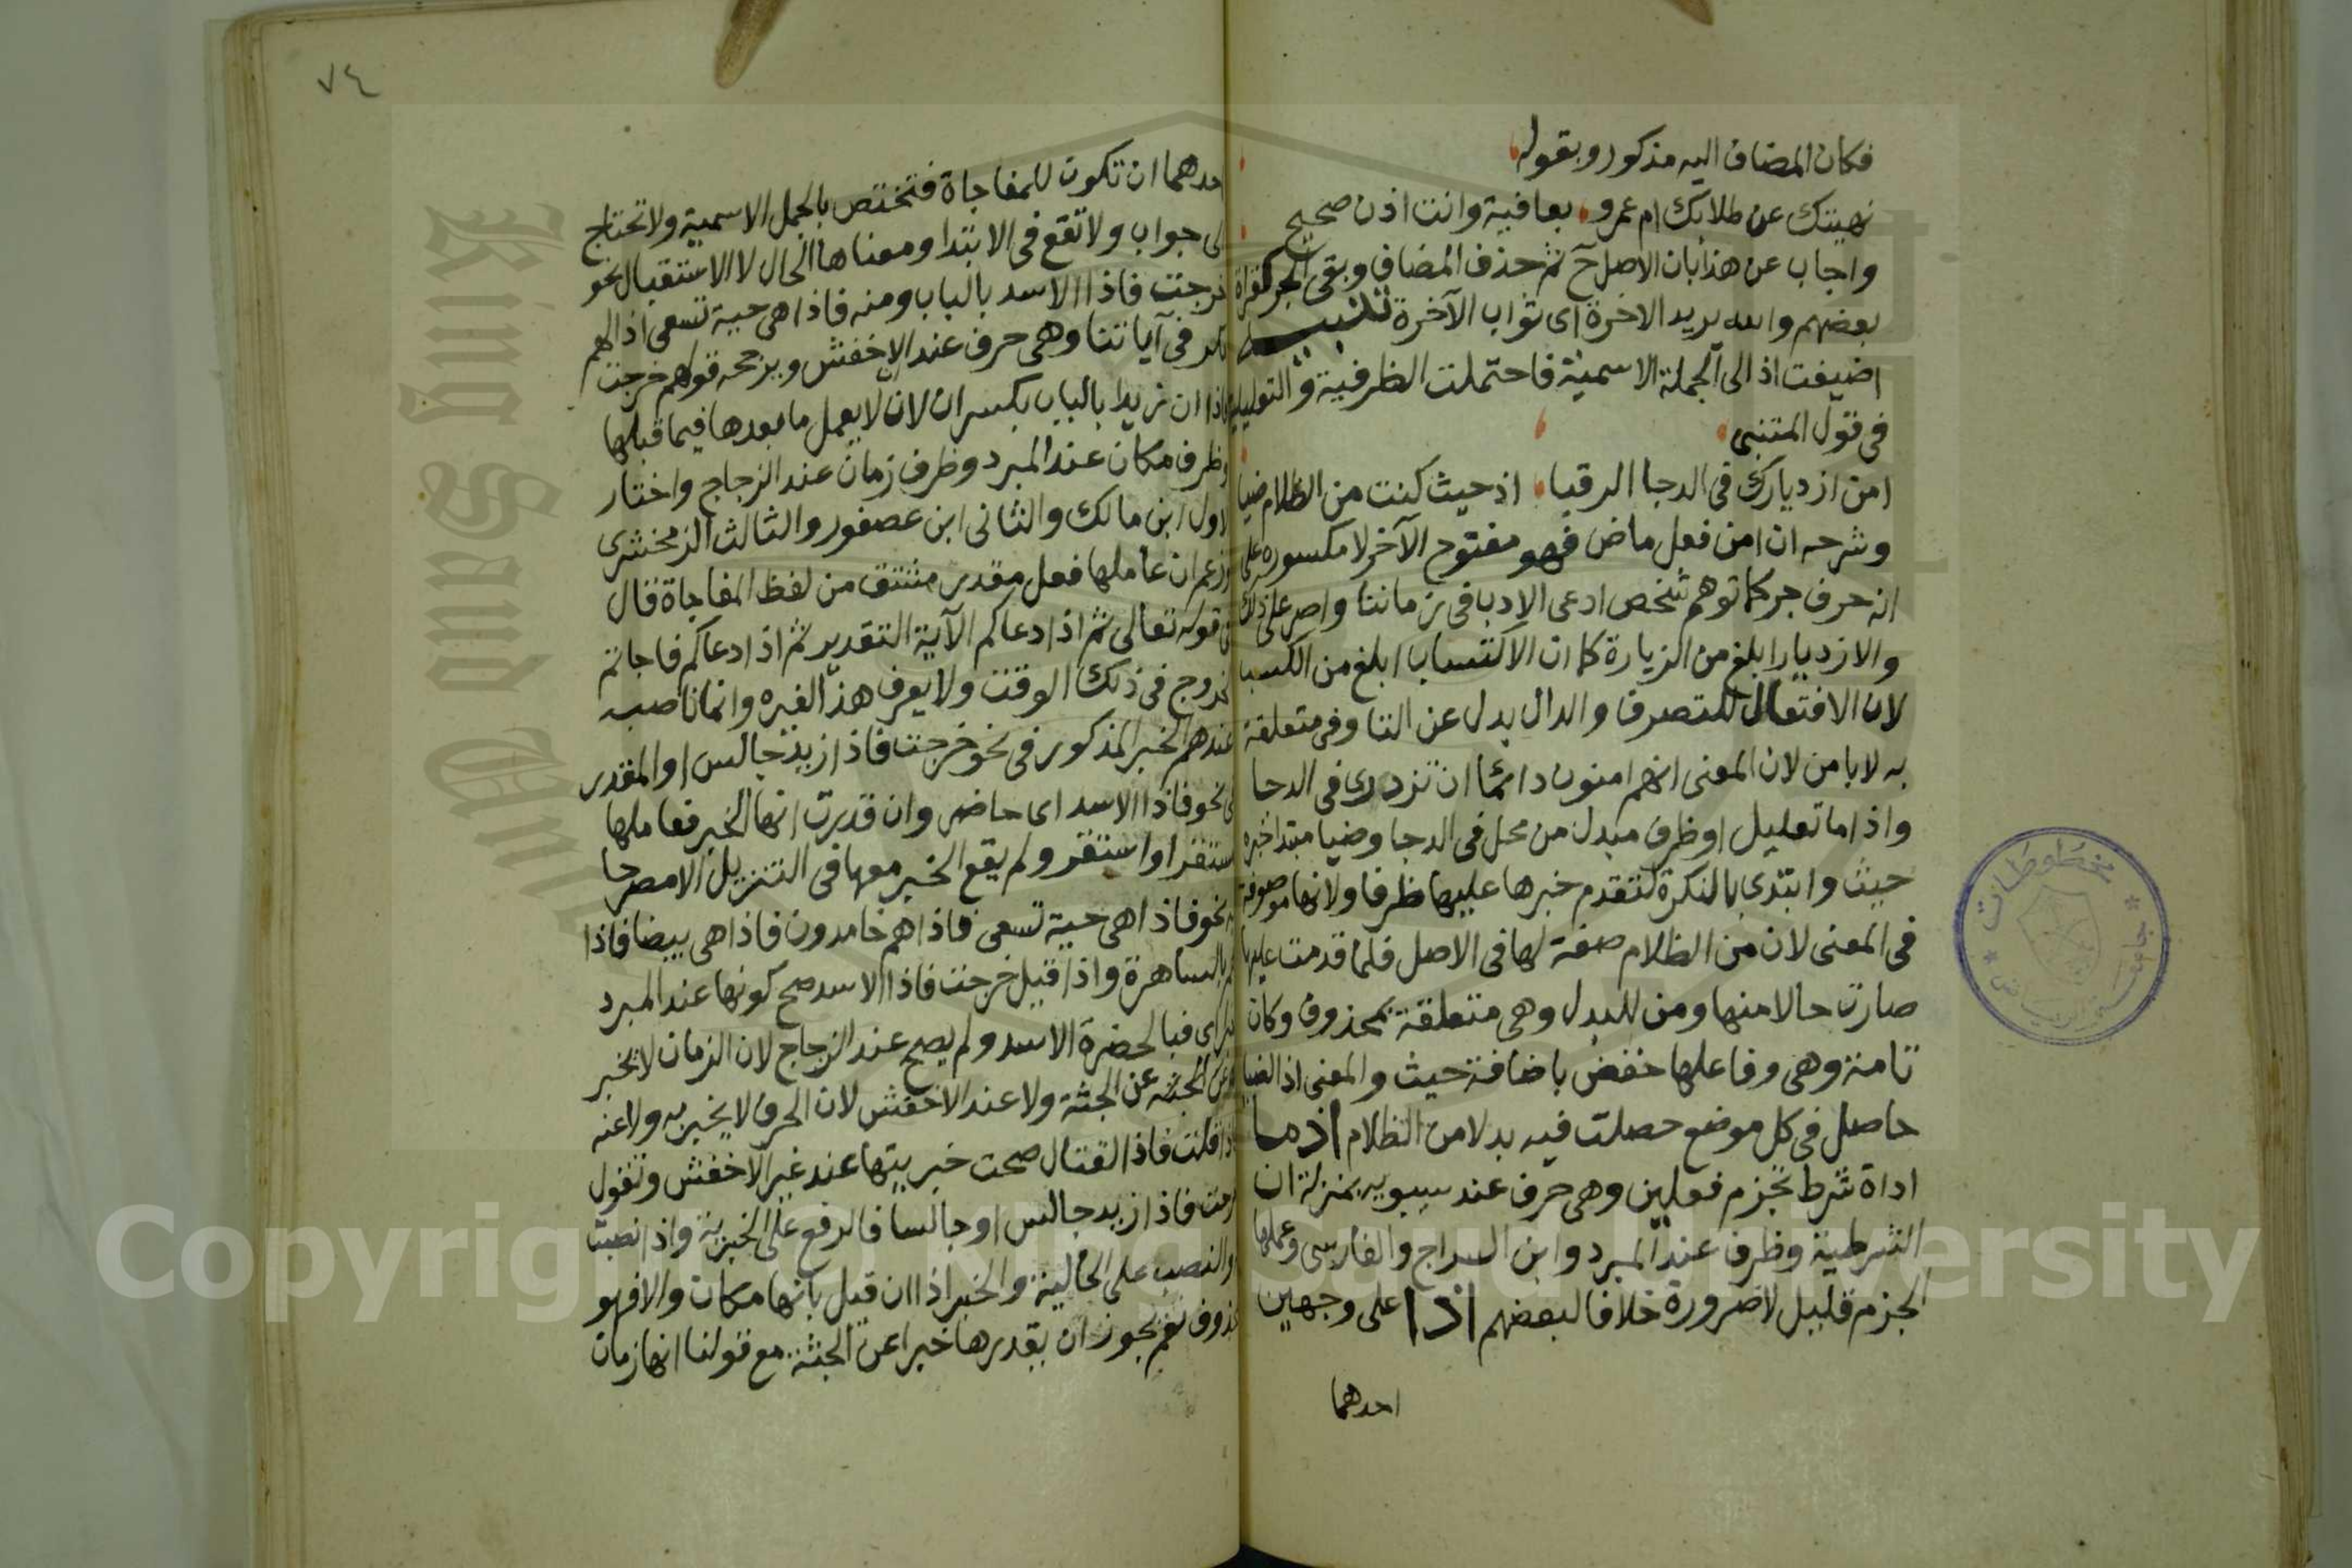 فكان المضاف اليه مذكور وبقوله
نهيتك عن طلابك ام عمرو بعافية وانت اذن صحيح
واجاب عن هذا بان الاصل ح ثم حذف المضاف وبقى الجر كقراة
بعضهم والله يريد الاخرة اى ثواب الآخرة تنبيه
اضيفت اذ الى الجملة الاسمية فاحتملت الظرفية والتعليلية
فى قول المتنبى
امن ازديارك فى الدجا الرقبا اذ حيث كنت من الظلام ضيا
وشرحه ان امن فعل ماض فهو مفتوح الآخر لا مكسوره على
انه حرف جر كما توهم شخص ادعى الادب فى زماننا واصر على ذلك
والازديار ابلغ من الزيارة كما ان الاكتساب ابلغ من الكسب
لان الافتعال للتصرف والدال بدل عن التا وفى متعلقة
به لا بامن لان المعنى انهم امنون دائما ان تزورى فى الدجا
واذ اما تعليل او ظرف مبدل من محل فى الدجا وضيا مبتدا خبره
حيث وابتدى بالنكرة لتقدم خبرها عليها ظرفا ولانها موصوفة
فى المعنى لان من الظلام صفة لها فى الاصل فلما قدمت عليها
صارت حالا منها ومن للبدل وهى متعلقة بمحذوف وكان
تامة وهى وفاعلها خفض باضافة حيث والمعنى اذ الضيا
حاصل فى كل موضع حصلت فيه بدلا من الظلام اذما
اداة شرط تجزم فعلين وهى حرف عند سيبويه بمنزلة ان
الشرطية وظرف عند المبرد وابن السراج والفارسى وعملها
الجزم قليل لا ضرورة خلافا لبعضهم اذا على وجهين
احدهما
٧٤
احدهما ان تكون للمفاجاة فتختص بالجمل الاسمية ولا تحتاج
لى جواب ولا تقع فى الابتدا ومعناها الحال لا الاستقبال نحو
خرجت فاذا الاسد بالباب ومنه فاذا هى حية تسعى اذا لهم
مكر فى آياتنا وهى حرف عند الاخفش ويرجحه قولهم خرجت
فاذا ان زيدا بالباب بكسر ان لان لا يعمل ما بعدها فيما قبلها
وظرف مكان عند المبرد وظرف زمان عند الزجاج واختار
لاول ابن مالك والثانى ابن عصفور والثالث الزمخشرى
وزعم ان عاملها فعل مقدر مشتق من لفظ المفاجاة قال
فى قوله تعالى ثم اذا دعاكم الآية التقدير ثم اذا دعاكم فاجاتم
لخروج فى ذلك الوقت ولا يعرف هذا لغيره وانما ناصبه
عندهم الخبر المذكور فى نحو خرجت فاذا زيد جالس او المقدر
فى نحو فاذا الاسد اى حاضر وان قدرت انها الخبر فعاملها
ستقر او استقر ولم يقع الخبر معها فى التنزيل الا مصرحا
به نحو فاذا هى حية تسعى فاذا هم خامدون فاذا هى بيضا فاذا
هم بالساهرة واذا قيل خرجت فاذا الاسد صح كونها عند المبرد
خبرا اى فبالحضرة الاسد ولم يصح عند الزجاج لان الزمان لا يخبر
به عن الجثة عن الجثة ولا عند الاخفش لان الحرف لا يخبر به ولا عنه
فاذا قلت فاذا القتال صحت خبريتها عند غير الاخفش وتقول
خرجت فاذا زيد جالس او جالسا فالرفع على الخبرية واذا نصبت
والنصب على الحالية والخبر اذا ان قيل بانها مكان والا فهو
محذوف نعم يجوز ان يقدرها خبرا عن الجثة مع قولنا انها زمان